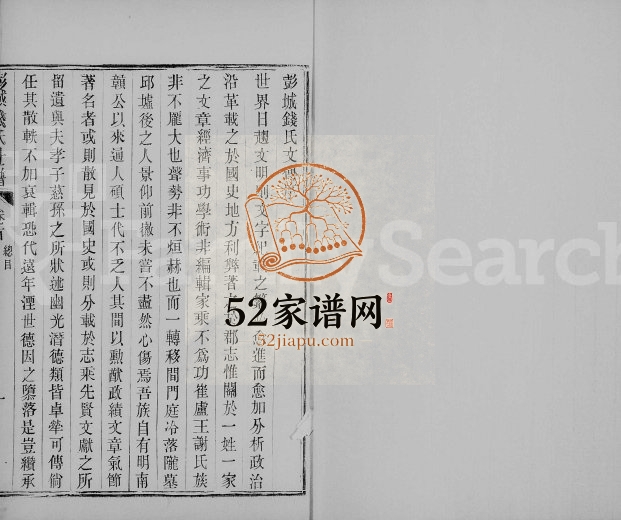 彭城錢氏文
世界日趨文明則文字 進而愈加分析政治
沿革載之於國史地方利弊著 郡志惟關於一姓一家
之文章經濟事功學術非編輯家乘不爲功崔盧王謝氏族
非不龐大也聲勢非不烜赫也而一轉移間門庭冷落隴墓
邱墟後之人景仰前徽未嘗不盡然心傷焉吾族自有明南
贛公以來通人碩士代不乏人其間以勳猷政績文章氣節
著名者或則散見於國史或則分載於志乘先賢文獻之所
留遺與夫孝子慈孫之所狀述幽光潛德類皆卓犖可傳尚
任其散軼不加裒輯恐代遠年湮世德因之墮落是豈纘承
彭城錢氏 譜 總目 一
FamilySearch
52家谱网
52jiapu.com